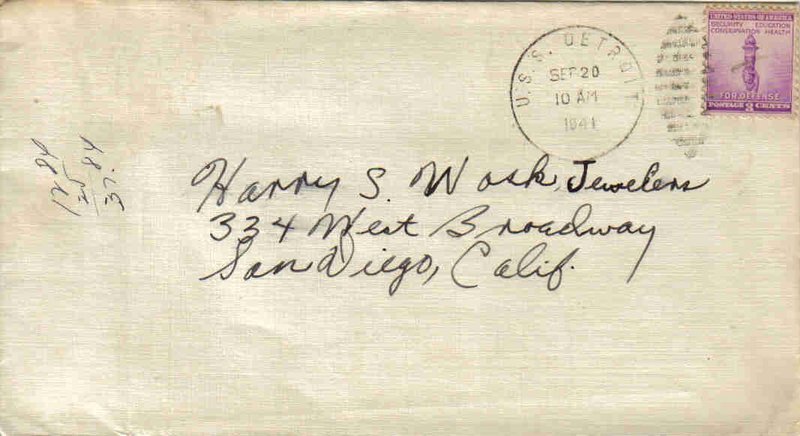 U.S.S. DETROIT
SEP 20
10 AM
1941
UNITED STATES OF AMERICA
SECURITY EDUCATION
CONSERVATION HEALTH
FOR DEFENSE
POSTAGE 3 CENTS
Harry S. Wosk, Jewelers
334 West Broadway
San Diego, Calif.